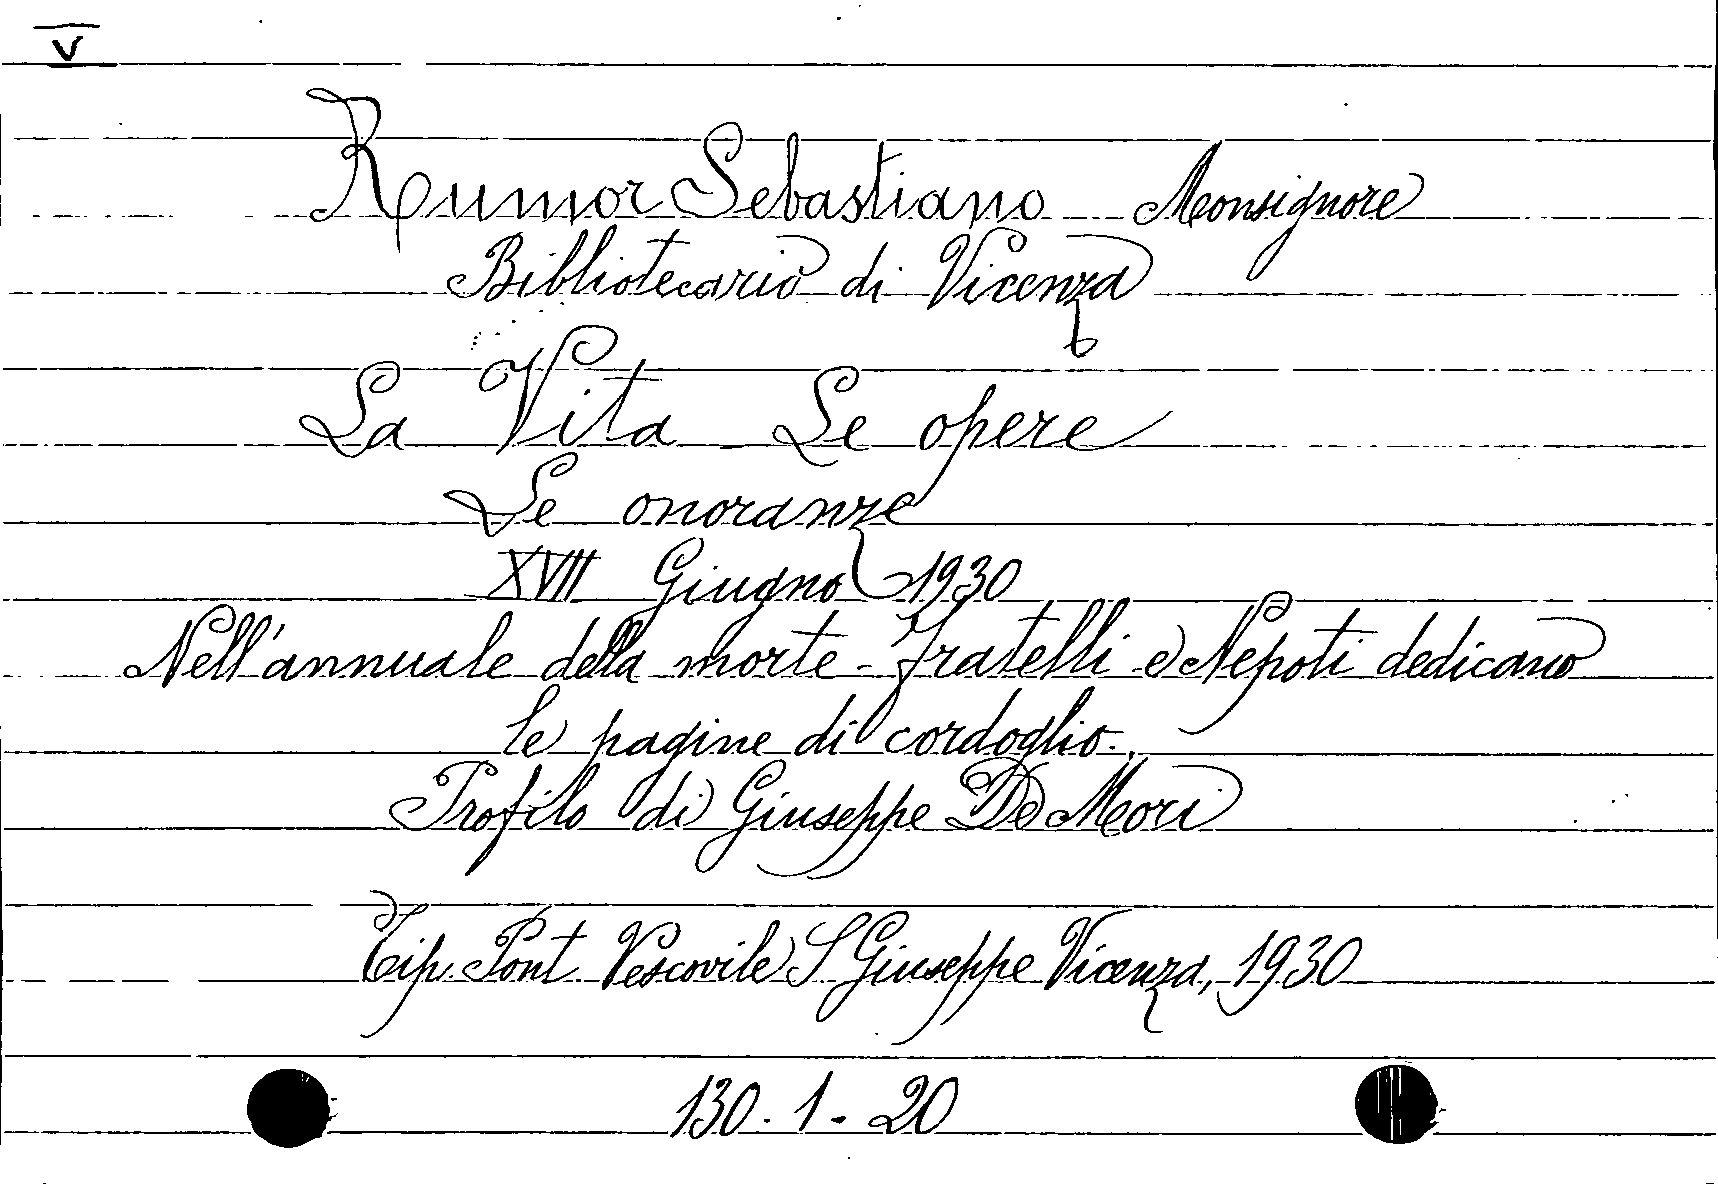 V
Rumor Sebastiano Monsignore
Bibliotecario di Vicenza
La Vita Le opere
Le onoranze
XVII Giugno 1930
Nell'annuale della morte - Fratelli e Nepoti dedicano
le pagine di cordoglio.
Profilo di Giuseppe De Mori
Tip. Pont Vescovile S Giuseppe Vicenza, 1930
130-1-20